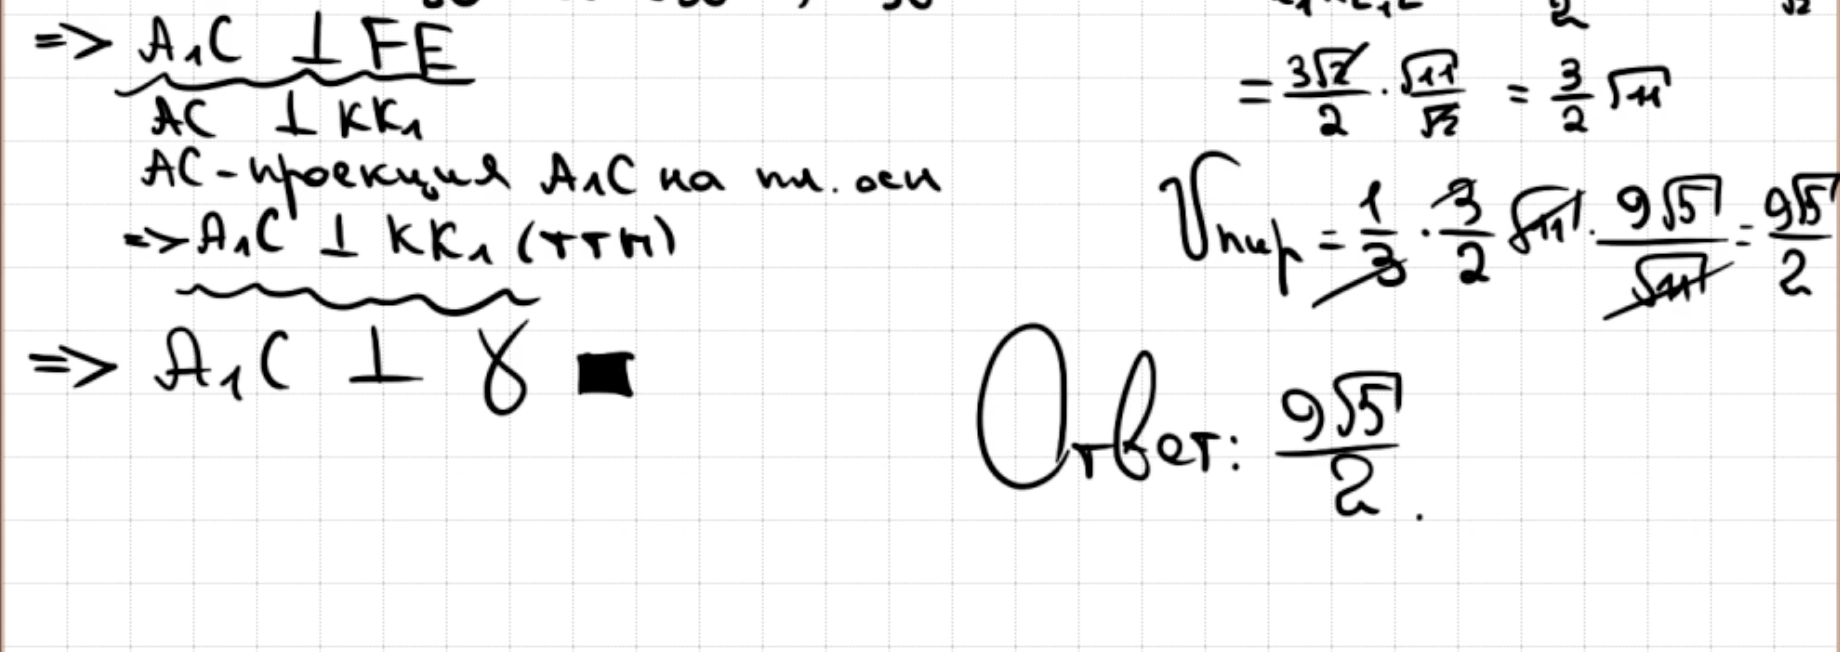 => A₁C ⊥ FE
AC ⊥ KK₁
AC - проекция A₁C на пл. осн
=> A₁C ⊥ KK₁ (ттп)
=> A₁C ⊥ γ ■
= 3√2/2 · √11/√2 = 3/2 √11
Vпир = 1/3 · 3/2 √11 · 9√5/√11 = 9√5/2
Ответ: 9√5/2.